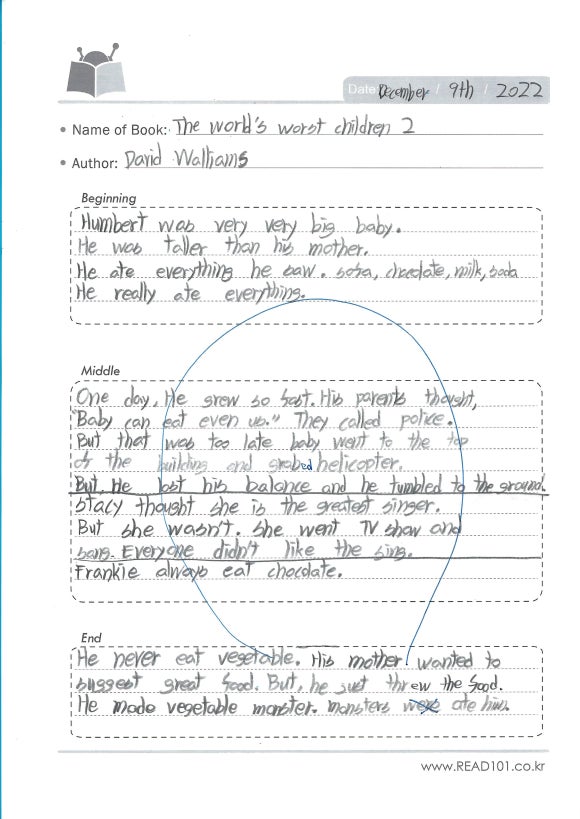 Date: December / 9th / 2022
• Name of Book: The world's worst children 2
• Author: David Walliams
Beginning
Humbert was very very big baby.
He was taller than his mother.
He ate everything he saw. sofa, chocolate, milk, soda
He really ate everything.
Middle
One day, He grew so fast. His parents thought,
"Baby can eat even us." They called police.
But that was too late baby went to the top
of the building and grabed helicopter.
But, He lost his balance and he tumbled to the ground.
Stacy thought she is the greatest singer.
But she wasn't. She went TV show and
sang. Everyone didn't like the sing.
Frankie always eat chocolate.
End
He never eat vegetable. His mother wanted to
suggest great food. But, he just threw the food.
He made vegetable monster. monsters ate him.
www.READ101.co.kr